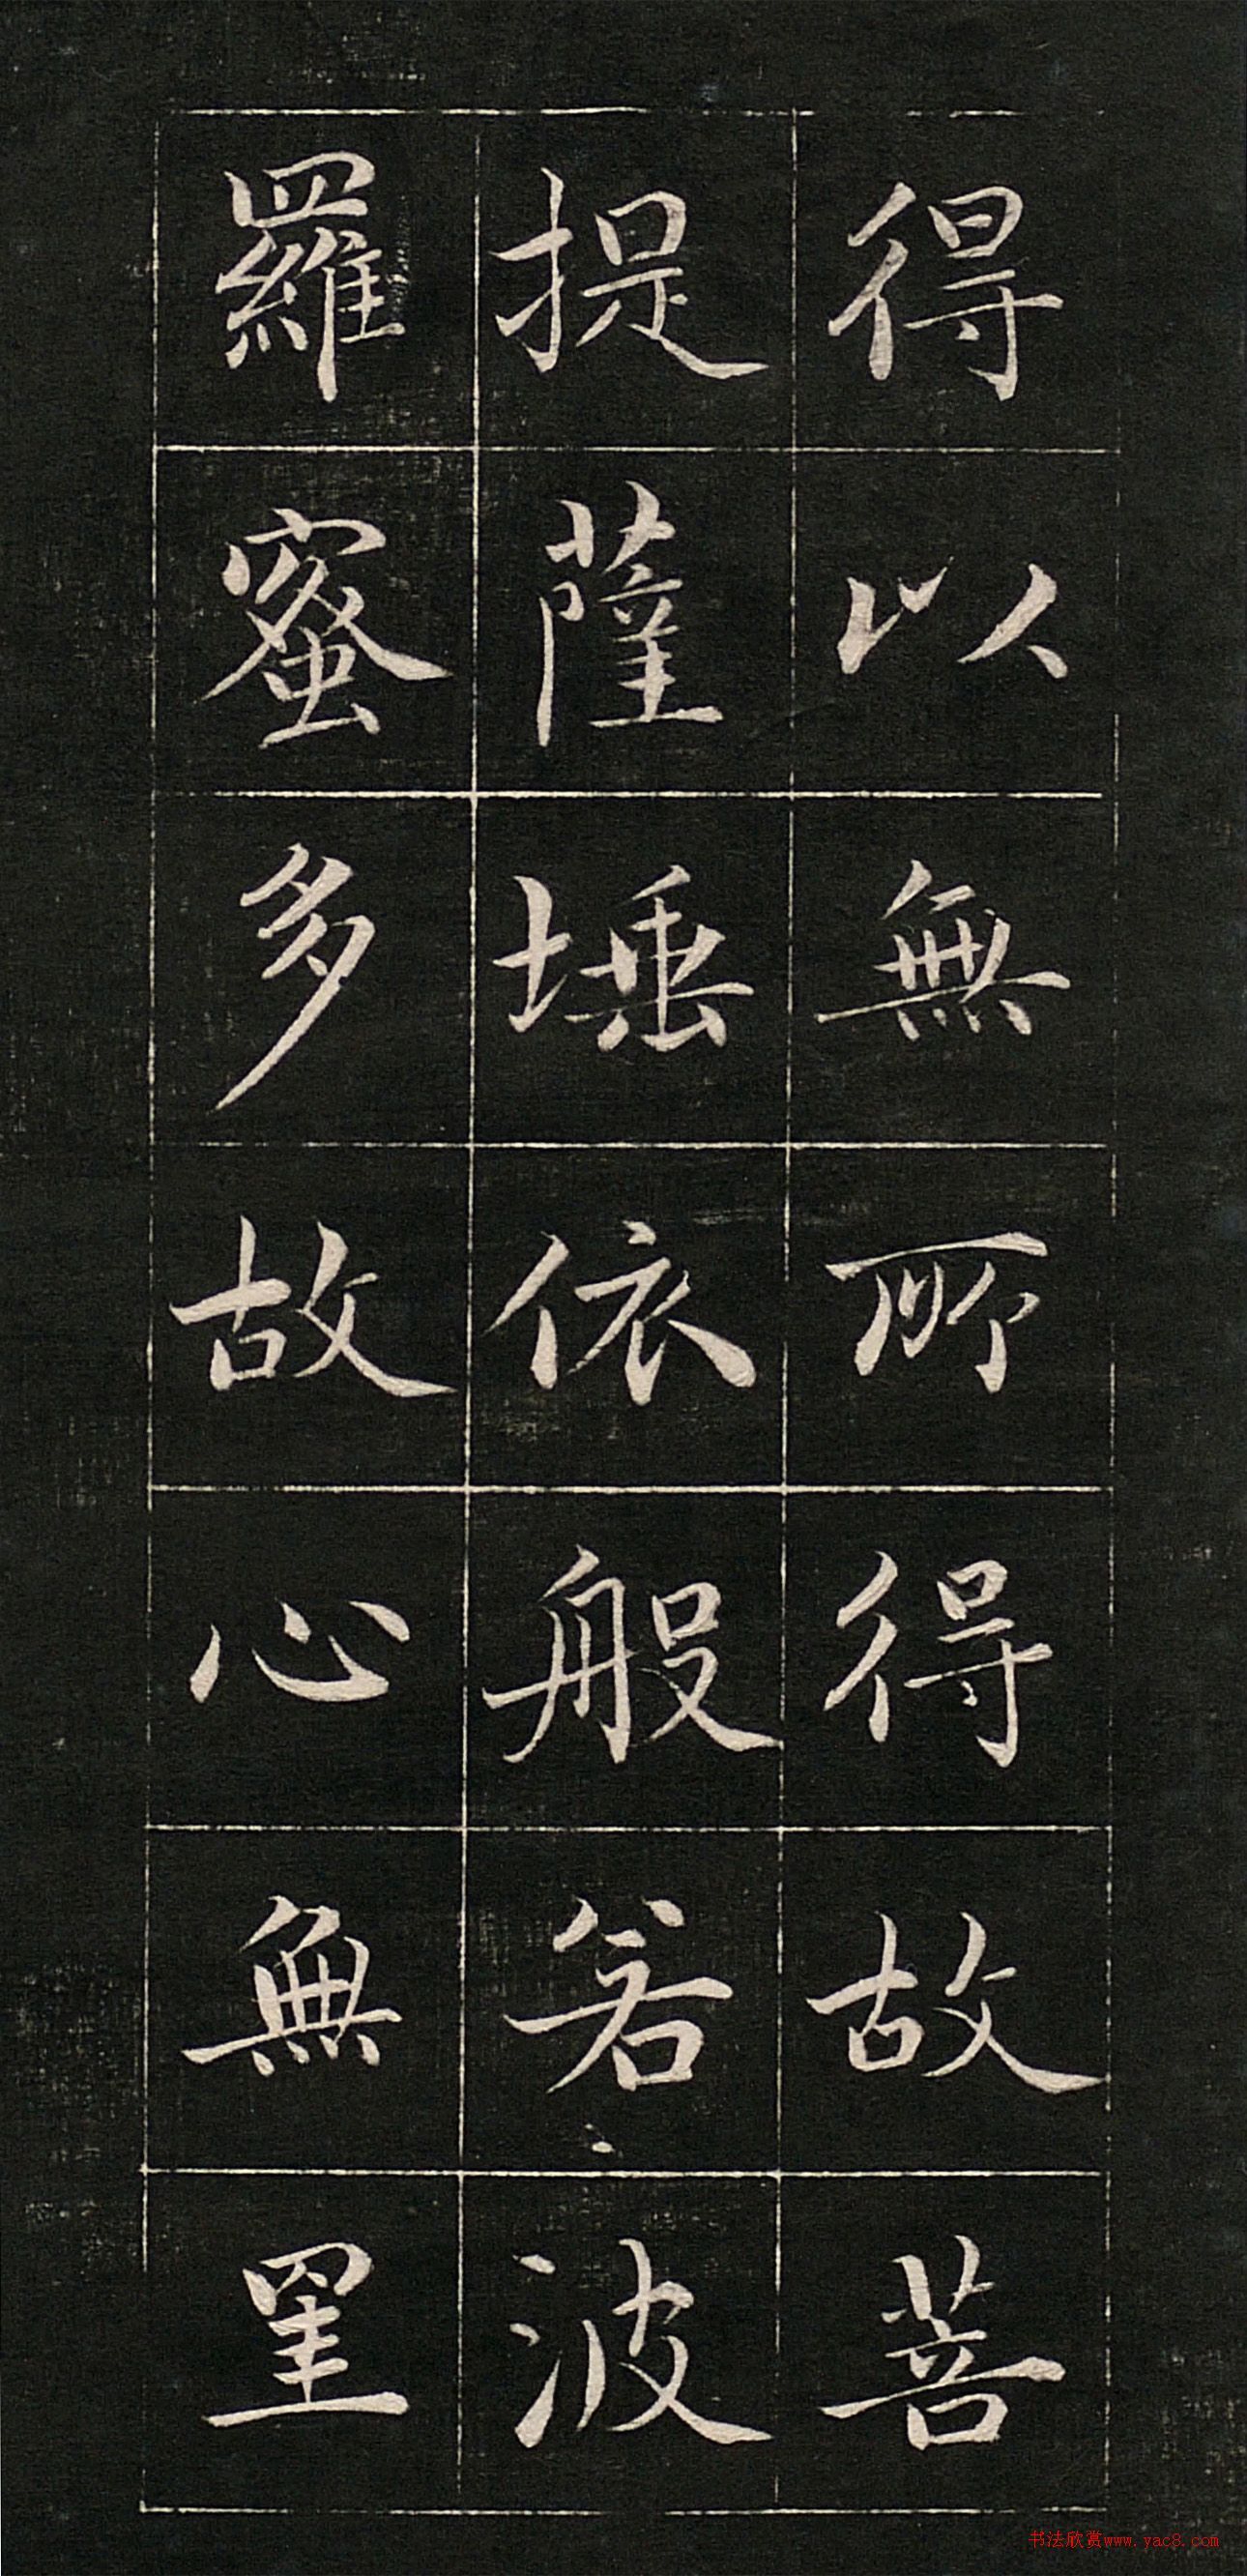 得以無所得故菩
提薩埵依般若波
羅蜜多故心無罣
书法欣赏www.yac8.com